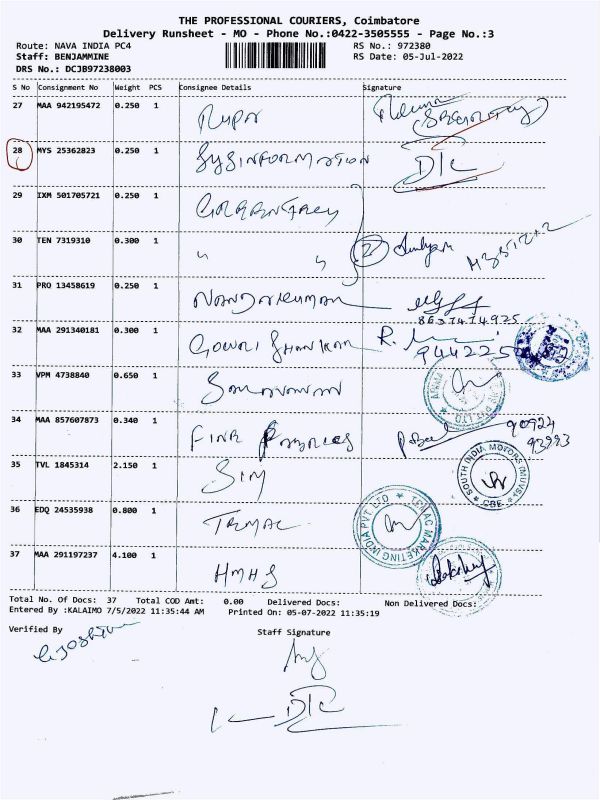 THE PROFESSIONAL COURIERS, Coimbatore
Delivery Runsheet - MO - Phone No.:0422-3505555 - Page No.:3
Route: NAVA INDIA PC4 RS No.: 972380
Staff: BENJAMMINE RS Date: 05-Jul-2022
DRS No.: DCJB97238003
S No Consignment No Weight PCS Consignee Details Signature
27 MAA 942195472 0.250 1
28 MYS 25362823 0.250 1 SYSINFORMATION D/C
29 IXM 501705721 0.250 1
30 TEN 7319310 0.300 1 " " 2
31 PRO 13458619 0.250 1 NANDAKUMAR
32 MAA 291340181 0.300 1 GOWRI SHANKAR R.
33 VPM 4738840 0.650 1 SARAVANAN
34 MAA 857607873 0.340 1 FINE FABRICS 90924
93993
35 TVL 1845314 2.150 1 SIM SOUTH INDIA MOTORS CBE
36 EDQ 24535938 0.800 1 TEMAC TEMAC MARKETING INDIA PVT LTD
37 MAA 291197237 4.100 1 HMHS
Total No. Of Docs: 37 Total COD Amt: 0.00 Delivered Docs: Non Delivered Docs:
Entered By :KALAIMO 7/5/2022 11:35:44 AM Printed On: 05-07-2022 11:35:19
Verified By Staff Signature
1 D/C